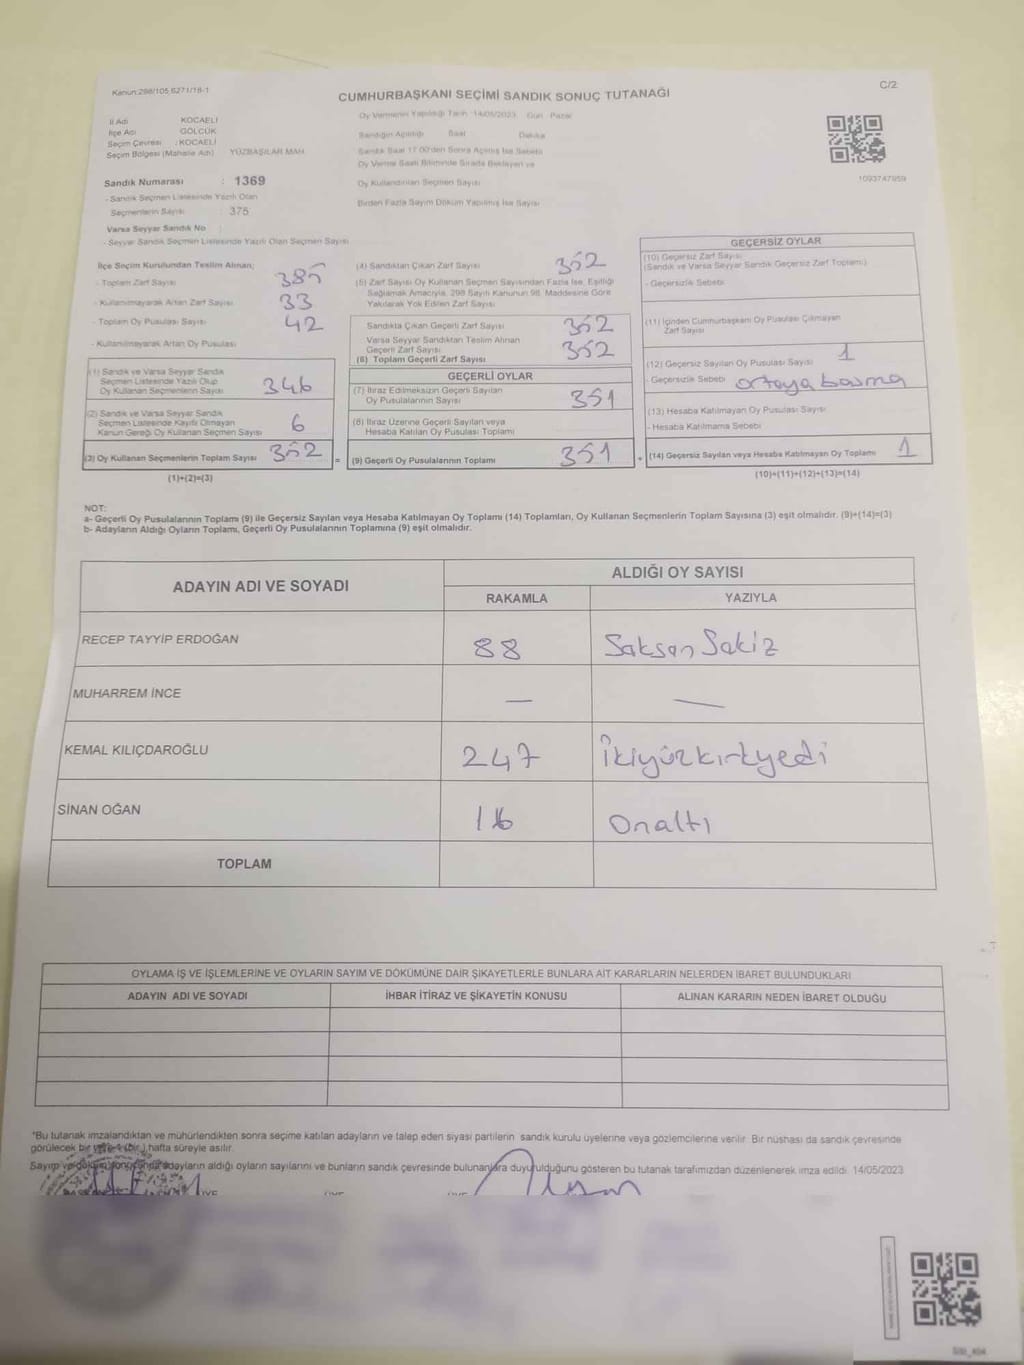 Kanun:298/105,6271/18-1
C/2
CUMHURBAŞKANI SEÇİMİ SANDIK SONUÇ TUTANAĞI
İl Adı KOCAELİ
İlçe Adı GÖLCÜK
Seçim Çevresi : KOCAELİ
Seçim Bölgesi (Mahalle Adı) YÜZBAŞILAR MAH.
Sandık Numarası : 1369
- Sandık Seçmen Listesinde Yazılı Olan
Seçmenlerin Sayısı : 375
Varsa Seyyar Sandık No :
- Seyyar Sandık Seçmen Listesinde Yazılı Olan Seçmen Sayısı
Oy Vermenin Yapıldığı Tarih 14/05/2023 Gün : Pazar
Sandığın Açıldığı Saat Dakika
Sandık Saat 17.00'den Sonra Açılmış İse Sebebi
Oy Verme Saati Bitiminde Sırada Bekleyen ve
Oy Kullandırılan Seçmen Sayısı
Birden Fazla Sayım Döküm Yapılmış İse Sayısı
1093747959
İlçe Seçim Kurulundan Teslim Alınan;
- Toplam Zarf Sayısı 385
- Kullanılmayarak Artan Zarf Sayısı 33
- Toplam Oy Pusulası Sayısı 42
- Kullanılmayarak Artan Oy Pusulası
(1) Sandık ve Varsa Seyyar Sandık
Seçmen Listesinde Yazılı Olup
Oy Kullanan Seçmenlerin Sayısı 346
(2) Sandık ve Varsa Seyyar Sandık
Seçmen Listesinde Kayıtlı Olmayan
Kanun Gereği Oy Kullanan Seçmen Sayısı 6
(3) Oy Kullanan Seçmenlerin Toplam Sayısı 352 =
(1)+(2)=(3)
(4) Sandıktan Çıkan Zarf Sayısı 352
(5) Zarf Sayısı Oy Kullanan Seçmen Sayısından Fazla İse, Eşitliği
Sağlamak Amacıyla, 298 Sayılı Kanunun 98. Maddesine Göre
Yakılarak Yok Edilen Zarf Sayısı
Sandıkta Çıkan Geçerli Zarf Sayısı 352
Varsa Seyyar Sandıktan Teslim Alınan
Geçerli Zarf Sayısı 352
(6) Toplam Geçerli Zarf Sayısı
GEÇERLİ OYLAR
(7) İtiraz Edilmeksizin Geçerli Sayılan
Oy Pusulalarının Sayısı 351
(8) İtiraz Üzerine Geçerli Sayılan veya
Hesaba Katılan Oy Pusulası Toplamı
(9) Geçerli Oy Pusulalarının Toplamı 351 +
GEÇERSİZ OYLAR
(10) Geçersiz Zarf Sayısı
(Sandık ve Varsa Seyyar Sandık Geçersiz Zarf Toplamı)
- Geçersizlik Sebebi
(11) İçinden Cumhurbaşkanı Oy Pusulası Çıkmayan
Zarf Sayısı
(12) Geçersiz Sayılan Oy Pusulası Sayısı 1
- Geçersizlik Sebebi ortaya basma
(13) Hesaba Katılmayan Oy Pusulası Sayısı
- Hesaba Katılmama Sebebi
(14) Geçersiz Sayılan veya Hesaba Katılmayan Oy Toplamı 1
(10)+(11)+(12)+(13)=(14)
NOT:
a- Geçerli Oy Pusulalarının Toplamı (9) ile Geçersiz Sayılan veya Hesaba Katılmayan Oy Toplamı (14) Toplamları, Oy Kullanan Seçmenlerin Toplam Sayısına (3) eşit olmalıdır. (9)+(14)=(3)
b- Adayların Aldığı Oyların Toplamı, Geçerli Oy Pusulalarının Toplamına (9) eşit olmalıdır.
ADAYIN ADI VE SOYADI ALDIĞI OY SAYISI
RAKAMLA YAZIYLA
RECEP TAYYİP ERDOĞAN 88 Seksen Sekiz
MUHARREM İNCE — —
KEMAL KILIÇDAROĞLU 247 İkiyüzkırkyedi
SİNAN OĞAN 16 Onaltı
TOPLAM
OYLAMA İŞ VE İŞLEMLERİNE VE OYLARIN SAYIM VE DÖKÜMÜNE DAİR ŞİKAYETLERLE BUNLARA AİT KARARLARIN NELERDEN İBARET BULUNDUKLARI
ADAYIN ADI VE SOYADI İHBAR İTİRAZ VE ŞİKAYETİN KONUSU ALINAN KARARIN NEDEN İBARET OLDUĞU
*Bu tutanak imzalandıktan ve mühürlendikten sonra seçime katılan adayların ve talep eden siyasi partilerin sandık kurulu üyelerine veya gözlemcilerine verilir. Bir nüshası da sandık çevresinde
görülecek bir yere 1 (bir) hafta süreyle asılır.
Sayım ve döküm sonucunda adayların aldığı oyların sayılarını ve bunların sandık çevresinde bulunanlara duyurulduğunu gösteren bu tutanak tarafımızdan düzenlenerek imza edildi. 14/05/2023